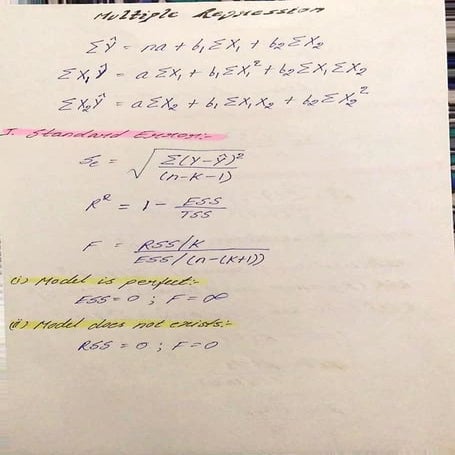 Multiple Regression
ΣŶ = na + b₁ΣX₁ + b₂ΣX₂
ΣX₁Ŷ = aΣX₁ + b₁ΣX₁² + b₂ΣX₁ΣX₂
ΣX₂Ŷ = aΣX₂ + b₁ΣX₁X₂ + b₂ΣX₂²
I. Standard Error:-
Se = √(Σ(Y-Ŷ)² / (n-K-1))
R² = 1 - ESS / TSS
F = RSS/K / ESS/(n-(K+1))
(i) Model is perfect:-
ESS = 0 ; F = ∞
(ii) Model does not exists:-
RSS = 0 ; F = 0